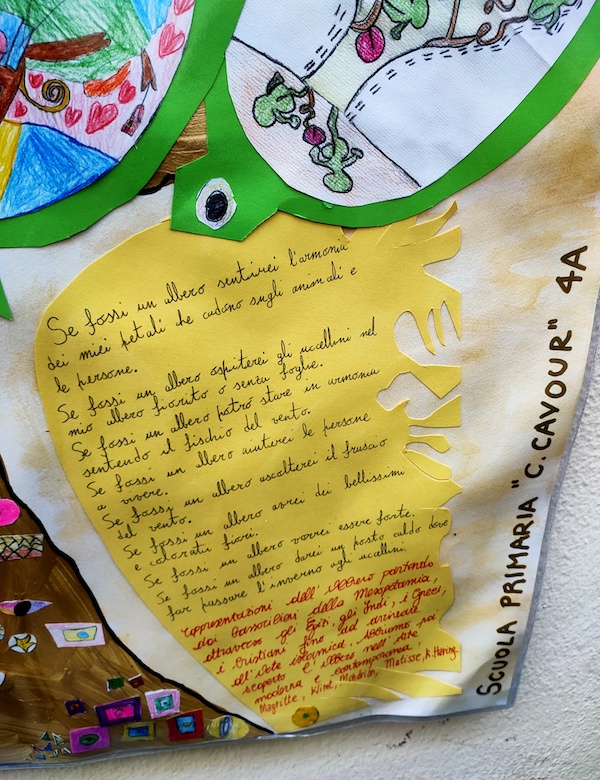 Se fossi un albero sentirei l'armonia
dei miei petali che cadono sugli animali e
le persone.
Se fossi un albero ospiterei gli uccellini nel
mio albero fiorito o senza foglie.
Se fossi un albero potrò stare in armonia
sentendo il fischio del vento.
Se fossi un albero aiuterei le persone
a vivere.
Se fossy un albero ascolterei il fruscio
del vento.
Se fossi un albero avrei dei bellissimi
e coloratii fiori.
Se fossi un albero vorrei essere forte.
Se fossi un albero darei un posto caldo dove
far passare l'inverno agli uccellini.
rappresentazioni dell'Albero partendo
dai bassorilievi della Mesopotamia,
attraverso gli Egizi, gli Indi, i Greci,
i Cristiani fino ad arrivare
all'arte islamica. Abbiamo poi
scoperto l'albero nell'arte
moderna e contemporanea:
Magritte, Klimt, Mondrian, Matisse, K. Haring.
SCUOLA PRIMARIA "C. CAVOUR" 4A